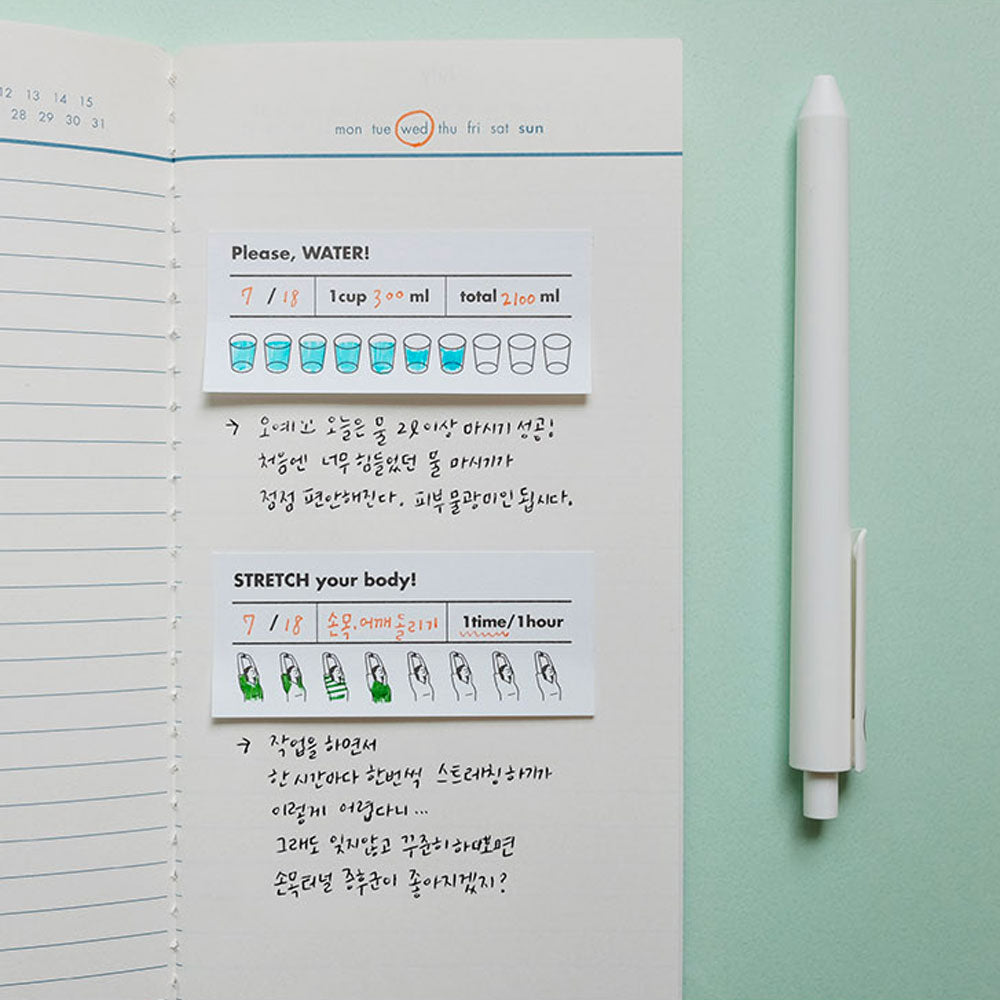 12 13 14 15
28 29 30 31
mon tue wed thu fri sat sun
Please, WATER!
7 / 18 1cup 300 ml total 2100 ml
→ 오예 오늘은 물 2l 이상 마시기 성공!
처음엔 너무 힘들었던 물 마시기가
점점 편안해진다. 피부 물광미인 됩시다.
STRETCH your body!
7 / 18 손목.어깨 돌리기 1time/1hour
→ 작업을 하면서
한 시간마다 한번씩 스트레칭하기가
이렇게 어렵다니...
그래도 잊지않고 꾸준히 하다보면
손목터널 증후군이 좋아지겠지?